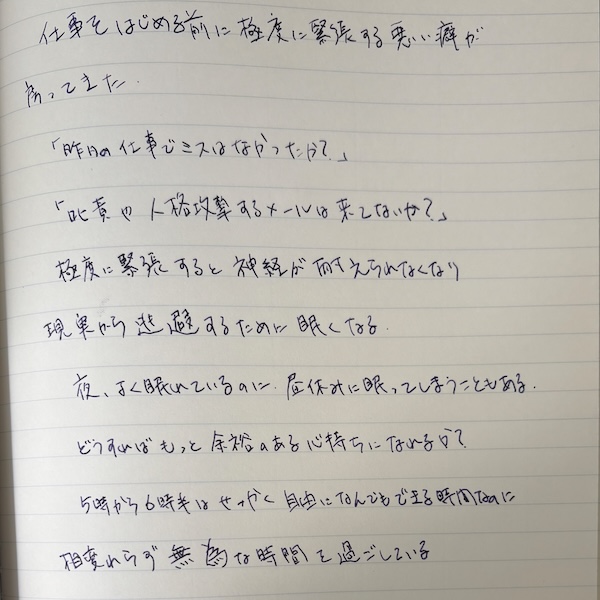 仕事をはじめる前に極度に緊張する悪い癖が
戻ってきた.
「昨日の仕事でミスはなかったか?」
「叱責や人格攻撃するメールは来てないか?」
極度に緊張すると神経が耐えられなくなり
現実から逃避するために眠くなる.
夜、よく眠れているのに、昼休みに眠ってしまうこともある.
どうすればもっと余裕のある心持ちになれるか?
5時から6時半はせっかく自由になんでもできる時間なのに
相変わらず無為な時間を過ごしている